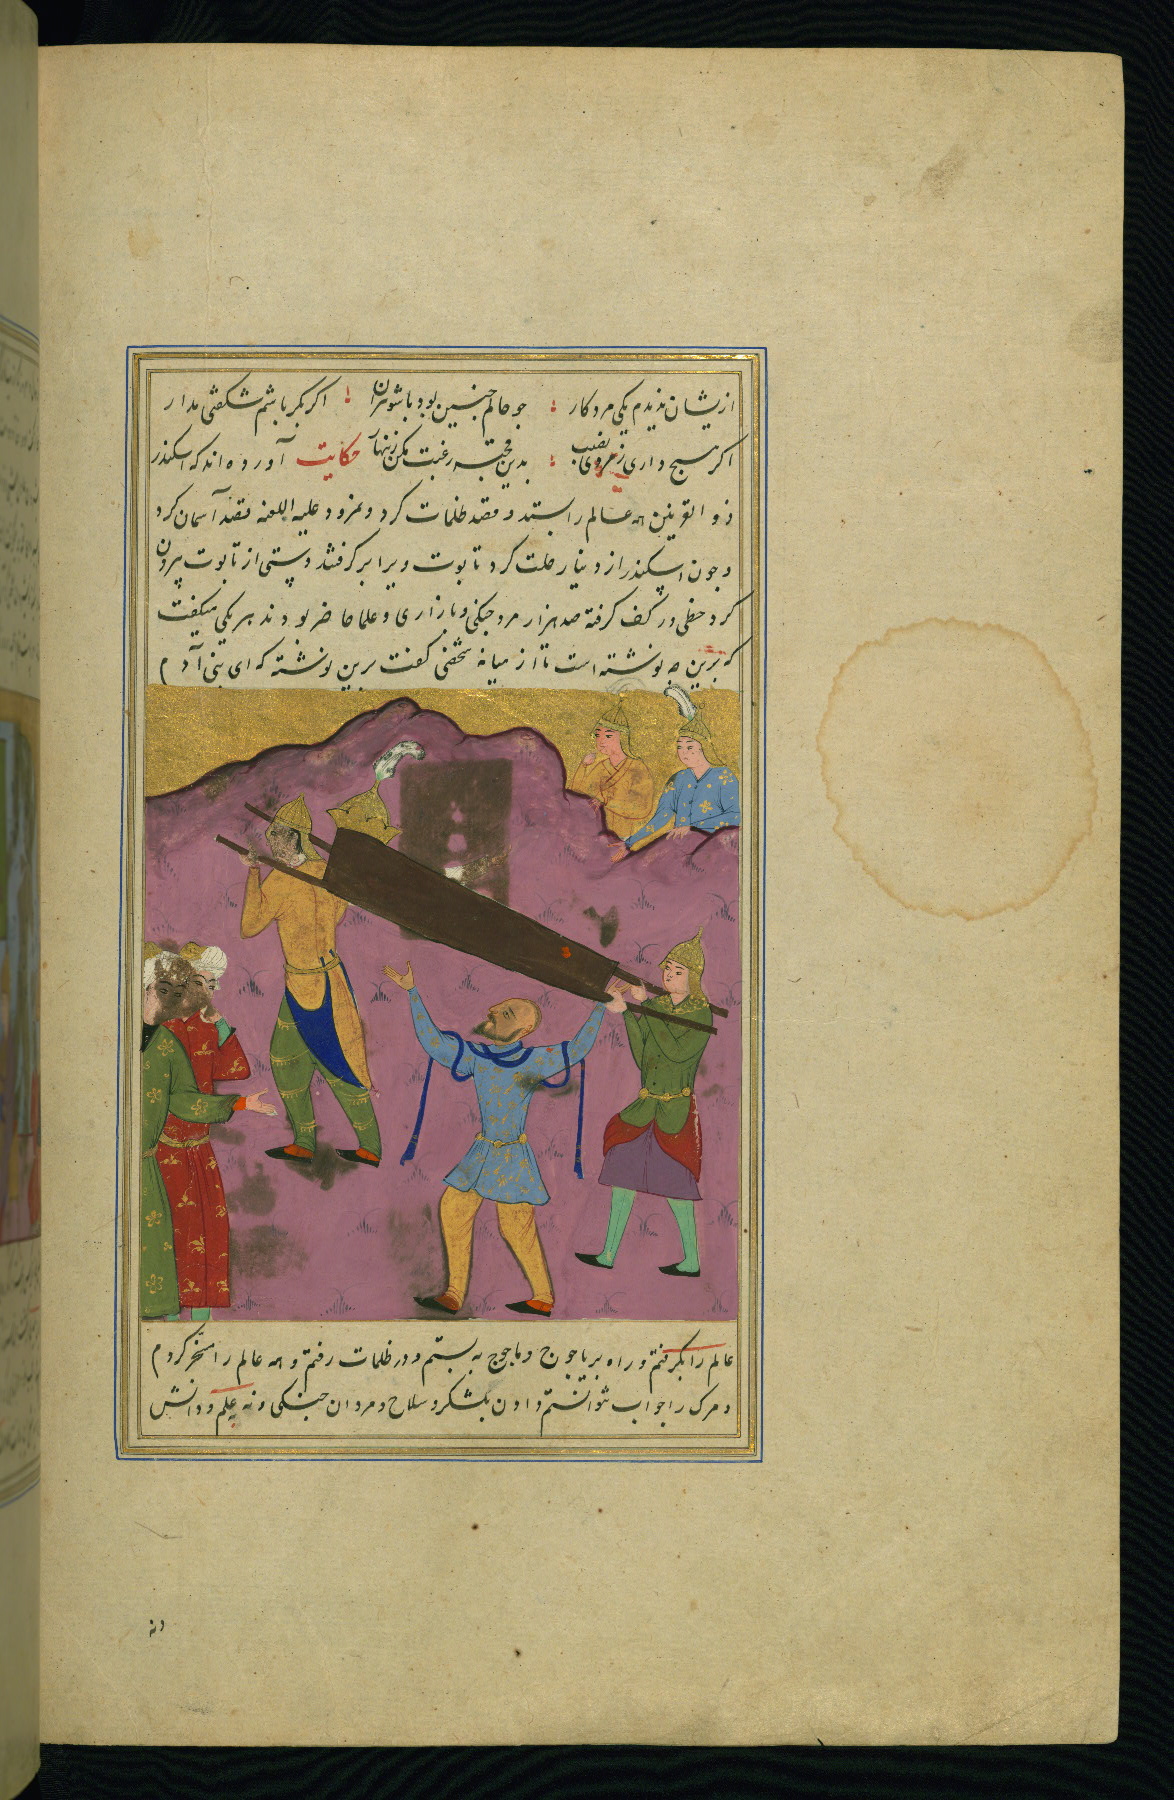 ازیشان ندیدم یکی مرد کار ؛ جو حالم جنین بود با شوهران ؛ اگر بکر باشم شگفتی مدار
اگر هیچ داری ز مردی نصیب ؛ بدین قحبه رغبت مکن زینهار حکایت آورده‌اند که اسکندر
ذو القرنین همه عالم را بستد و قصد ظلمات کرد و نمرود علیه اللعنه قصد آسمان کرد
و جون اسکندر از دنیا رحلت کرد تابوت ویرا برگرفتند و دستی از تابوت بیرون
کرد خطی در کف گرفته صد هزار مرد جنکی و بازاری و علما حاضر بودند هر یکی میکفت
که برین جه نوشته است تا از میانه شخصی کفت برین نوشته که ای بنی آدم
عالم را بگرفتم و راه بر یاجوج و ماجوج به بستم و در ظلمات رفتم و همه عالم را مسخر کردم
و مرک را جواب نتوانستم دادن بلشکر و سلاح و مردان جنکی و نه بعلم و دانش
ونه